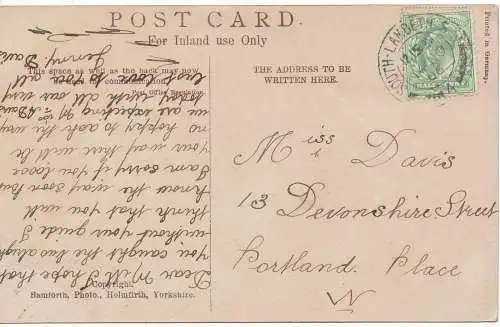 POST CARD.
For Inland use Only
This space as well as the back may now
be used for communication.
Post Office Regulation.
THE ADDRESS TO BE
WRITTEN HERE.
Printed in Germany.
SOUTH-LAMBETH
Miss Davis
13 Devonshire Street
Portland Place
W
Dear Mill I hope that
you caught the
without your guide I
think that you will
know the way soon how
I am sorry if you loose
your way there will be
no to ask the way
we are expecting Mr
today with all our very
best love to you all
Jenny Davis
Copyright.
Bamforth, Photo., Holmfirth, Yorkshire.